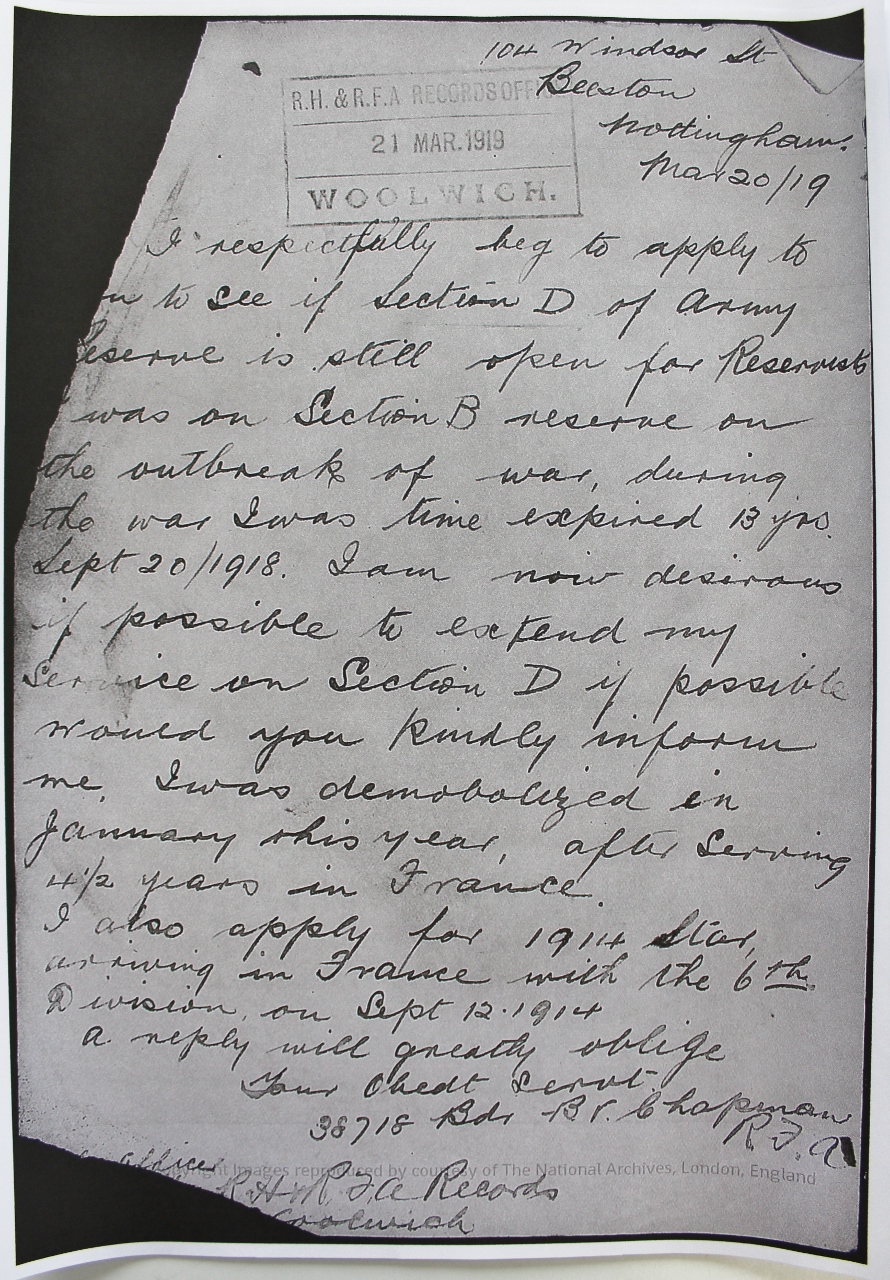 104 Windsor St
Beeston
Nottingham.
Mar 20/19
R.H. & R.F.A RECORDS OFF
21 MAR.1919
WOOLWICH.
I respectfully beg to apply to
to see if Section D of Army
eserve is still open for Reservists
was on Section B reserve on
the outbreak of war, during
the war I was time expired 13 yrs.
Sept 20/1918. I am now desirous
if possible to extend my
Service on Section D if possible
would you kindly inform
me. I was demobolized in
January this year, after Serving
4 1/2 years in France.
I also apply for 1914 Star,
arriving in France with the 6th
Division, on Sept 12.1914
a reply will greatly oblige
Your Obedt Servt.
38718 Bdr B.V. Chapman
R.F.A
office
R.H & R.F.A Records
Woolwich
Copyright Images reproduced by courtesy of The National Archives, London, England